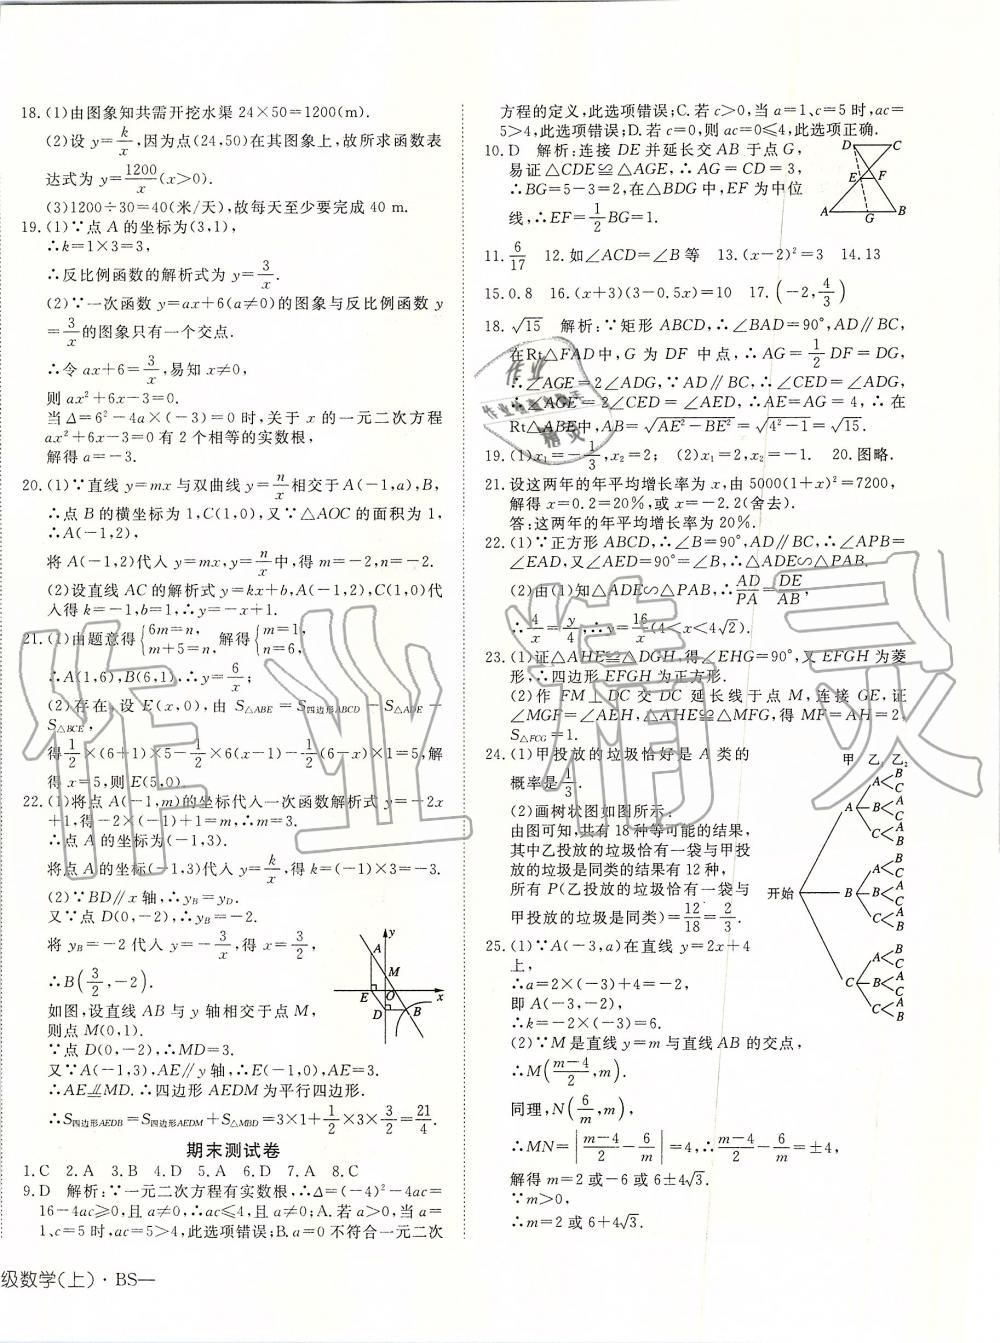 18.(1)由图象知共需开挖水渠24×50=1200(m).
(2)设y=k/x,因为点(24,50)在其图象上,故所求函数表
达式为y=1200/x(x>0).
(3)1200÷30=40(米/天),故每天至少要完成40 m.
19.(1)∵点A的坐标为(3,1),
∴k=1×3=3,
∴反比例函数的解析式为y=3/x.
(2)∵一次函数y=ax+6(a≠0)的图象与反比例函数y
=3/x的图象只有一个交点.
∴令ax+6=3/x,易知x≠0,
则ax²+6x-3=0.
当Δ=6²-4a×(-3)=0时,关于x的一元二次方程
ax²+6x-3=0有2个相等的实数根,
解得a=-3.
20.(1)∵直线y=mx与双曲线y=n/x相交于A(-1,a),B,
∴点B的横坐标为1,C(1,0),又∵△AOC的面积为1,
∴A(-1,2),
将A(-1,2)代入y=mx,y=n/x中,得m=-2,n=-2.
(2)设直线AC的解析式y=kx+b,A(-1,2),C(1,0)代
入得k=-1,b=1,∴y=-x+1.
21.(1)由题意得{6m=n, m+5=n, 解得{m=1, n=6,
∴A(1,6),B(6,1),∴y=6/x;
(2)存在,设E(x,0),由S△ABE=S四边形ABCD-S△ADE-
S△BCE,
得1/2×(6+1)×5-1/2×6(x-1)-1/2(6-x)×1=5,解
得x=5,则E(5,0).
22.(1)将点A(-1,m)的坐标代入一次函数解析式y=-2x
+1,得-2×(-1)+1=m,∴m=3.
∴点A的坐标为(-1,3).
将点A的坐标(-1,3)代入y=k/x,得k=(-1)×3=-3.
(2)∵BD∥x轴,∴yB=yD.
又∵点D(0,-2),∴yB=-2.
将yB=-2代入y=-3/x,得x=3/2,
∴B(3/2,-2).
如图,设直线AB与y轴相交于点M,
则点M(0,1).
∵点D(0,-2),∴MD=3.
又∵A(-1,3),AE∥y轴,∴E(-1,0),AE=3.
∴AE⫫MD.∴四边形AEDM为平行四边形.
∴S四边形AEDB=S四边形AEDM+S△MBD=3×1+1/2×3×3/2=21/4.
y
A
M
E
O
x
D
B
期末测试卷
1.C 2.A 3.B 4.D 5.A 6.D 7.A 8.C
9.D 解析:∵一元二次方程有实数根,∴Δ=(-4)²-4ac=
16-4ac≥0,且a≠0,∴ac≤4,且a≠0;A.若a>0,当a=
1、c=5时,ac=5>4,此选项错误;B.a=0不符合一元二次
级数学(上)·BS一
方程的定义,此选项错误;C.若c>0,当a=1、c=5时,ac=
5>4,此选项错误;D.若c=0,则ac=0≤4,此选项正确.
10.D 解析:连接DE并延长交AB于点G,
易证△CDE≌△AGE,∴AG=CD=3,
∴BG=5-3=2,在△BDG中,EF为中位
线,∴EF=1/2BG=1.
D C
E F
A G B
11.6/17 12.如∠ACD=∠B等 13.(x-2)²=3 14.13
15.0.8 16.(x+3)(3-0.5x)=10 17.(-2,4/3)
18.√15 解析:∵矩形ABCD,∴∠BAD=90°,AD∥BC,
在Rt△FAD中,G为DF中点,∴AG=1/2DF=DG,
∴∠AGE=2∠ADG,又AD∥BC,∴∠ADG=∠CED,
∴∠AGE=2∠CED=∠AED,∴AE=AG=4,∴在
Rt△ABE中,AB=√(AE²-BE²)=√(4²-1)=√15.
19.(1)x₁=-1/3,x₂=2; (2)x₁=2,x₂=-1. 20.图略.
21.设这两年的年平均增长率为x,由5000(1+x)²=7200,
解得x=0.2=20%,或x=-2.2(舍去).
答:这两年的年平均增长率为20%.
22.(1)∵正方形ABCD,∴∠B=90°,AD∥BC,∴∠APB=
∠EAD,又∠AED=90°=∠B,∴△ADE∽△PAB.
(2)由(1)知△ADE∽△PAB,∴AD/PA=DE/AB,
∴4/x=y/4,∴y=16/x(4<x<4√2).
23.(1)证△AHE≌△DGH,得∠EHG=90°,又EFGH为菱
形,∴四边形EFGH为正方形.
(2)作FM⊥DC交DC延长线于点M,连接GE,证
∠MGF=∠AEH,△AHE≌△MFG,得MF=AH=2,
S△FCG=1.
24.(1)甲投放的垃圾恰好是A类的
概率是1/3.
(2)画树状图如图所示.
由图可知,共有18种等可能的结果,
其中乙投放的垃圾恰有一袋与甲投
放的垃圾是同类的结果有12种,
所有P(乙投放的垃圾恰有一袋与
甲投放的垃圾是同类)=12/18=2/3.
甲 乙₁ 乙₂
开始
A
A B C
B A C
C A B
B
A B C
B A C
C A B
C
A B C
B A C
C A B
25.(1)∵A(-3,a)在直线y=2x+4
上,
∴a=2×(-3)+4=-2,
即A(-3,-2),
∴k=-2×(-3)=6.
(2)∵M是直线y=m与直线AB的交点,
∴M((m-4)/2,m).
同理,N(6/m,m),
∴MN=|(m-4)/2-6/m|=4,∴(m-4)/2-6/m=±4,
解得m=2或-6或6±4√3.
∵m>0,
∴m=2或6+4√3.
作业精灵